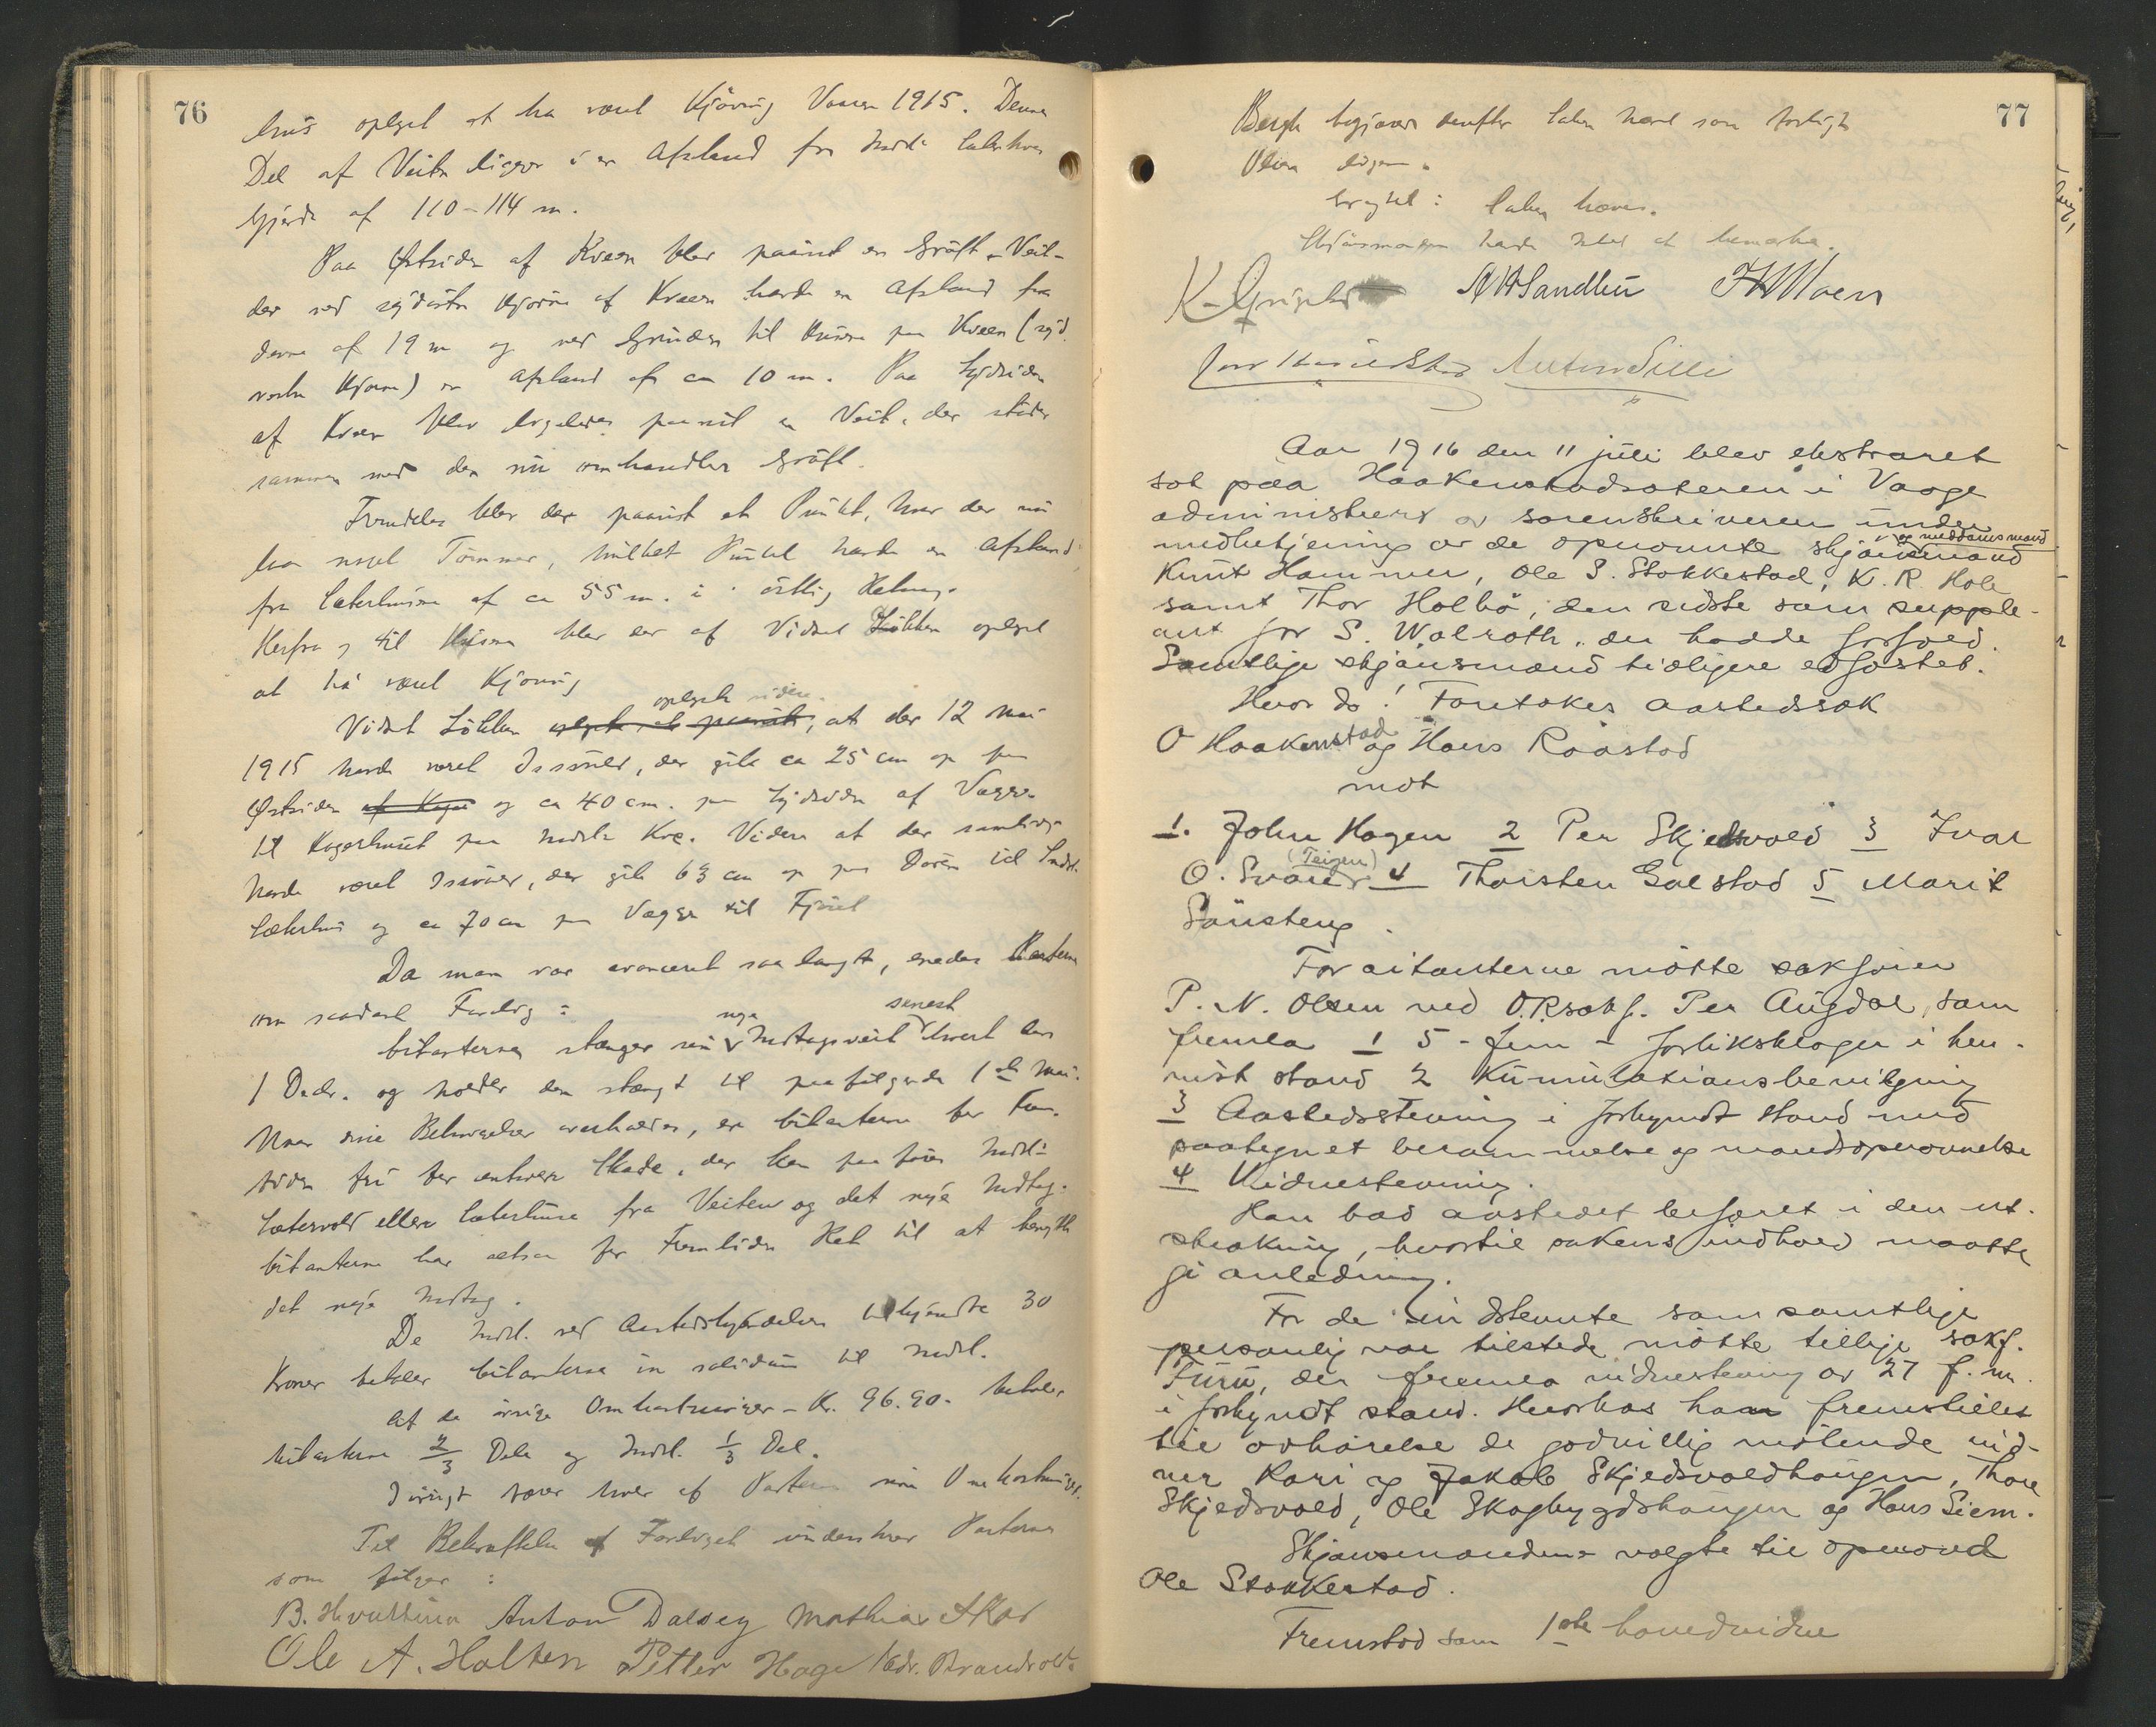 76
hus oplyst at ha været Kjøving Vaaren 1915. Denne
Del af Veiten ligger i en Afstand fra Indst. Sæterhus
Gjærde af 110-114 m.
Paa Østsiden af Kveen blev paavist en Grøft - Veit -
der ved sydøstre Hjørne af Kveen havde en Afstand fra
denne af 19 m og ved Grinden til Husene paa Kveen (syd
vestre Hjørne) en Afstand af ca 10 m. Paa Sydsiden
af Kveen blev ligeledes paavist en Veit, der støder
sammen med den nu omhandlede Grøft.
Fremdeles blev der paavist et Punkt, hvor der nu
laa noget Tømmer, hvilket Punkt havde en Afstand
fra Sæterhusene af ca 55 m. i østlig Retning.
Herfra og til Husene blev der af Vidnet Løkken oplyst
at ha været Kjøving
Vidnet Løkken oplyste videre, at der 12 Mai
1915 havde været Issvuller, der gik ca 25 cm op paa
Østsiden og ca 40 cm. paa Sydsiden af Væggen
til Kogerhuset paa nedste Kve. Videre at der samtidig
havde været Issvuller, der gik 63 cm op paa Døren til Indst.
Sæterhus og ca 70 cm paa Væggen til Fjøset
Da man var avanceret saa langt, enedes Parterne
om saadant Forlig:
Citanterne stænger sin nye Indtagsveit senest hvert Aar
1 Decbr. og holder den stængt til paafølgende 1ste Mai.
Naar disse Bestemmelser overholdes, er Citanterne for Frem-
tiden fri for enhver Skade, der kan paaføres Indst.
Sætervold eller Sæterhuse fra Veiten og det nye Indtag.
Citanterne har altsaa for Fremtiden Ret til at benytte
det nye Indtag.
De Indst. ved Aastedskjendelsen tilkjendte 30
Kroner betaler Citanterne in solidum til Indst.
Af de øvrige Omkostninger - Kr. 96.90 - betaler
Citanterne 2/3 Dele og Indst. 1/3 Del.
Iøvrigt bærer hver af Parterne sine Omkostninger.
Til Bekræftelse af Forliget underskrev Parterne
som følger:
B. Anton Dalseg Mathias
Ole A. Holten Petter Hage Kdr. Brandvold
77
Bergh begjærer derefter Saken hævet som forligt
Olsen ligesaa.
Eragtet: Saken hæves.
Skjønsmænden havde intet at bemerke.
A Sandbu Moen
Anton Lilli
Aar 1916 den 11 juli blev ekstraret
sat paa Haakenstadsæteren i Vaage
administrert av sorenskriveren under
og meddomsmænd
medbetjening av de opnævnte skjønsmænd
Knut Hammer, Ole S. Stokkestad, K. R. Hole
samt Thor Holbø, den sidste som supple-
ant for S. Walroth, der hadde forfald.
Samtlige skjønsmænd tidligere edfæstet.
Hvor da! Foretokes aastedssak
O Haakenstad og Hans Raastad
mot
1. John Hagen 2 Per Skjedsvold 3 Ivar
(Teigen)
O. Svare 4 Thorsten Galstad 5 Marit
Sønsteng.
For citanterne møtte sakfører
P. N. Olsen ved O.R.sakf. Per Augdal, som
fremla 1 5 - fem - forliksklager i hen-
vist stand 2 Kumulationsbevilgning
3 Aastedsstevning i forkyndt stand med
paategnet berammelse og mandsopnævnelse
4 Vidnestevning.
Han bad aastedet befaret i den ut-
strækning, hvortil sakens indhold maatte
gi anledning.
For de indstevnte som samtlige
personlig var tilstede møtte tillige sakf.
Furu, der fremla vidnestevning av 27 f. m.
i forkyndt stand. Hvorhos han fremstilles
til avhørelse de godvillig møtende vid-
ner Kari og Jakob Skjedsvoldhaugen, Thore
Skjedsvold, Ole Skogbygdshaugen og Hans Siem.
Skjønsmændene valgte til opmand
Ole Stokkestad.
Fremstod som 1ste hovedvidne